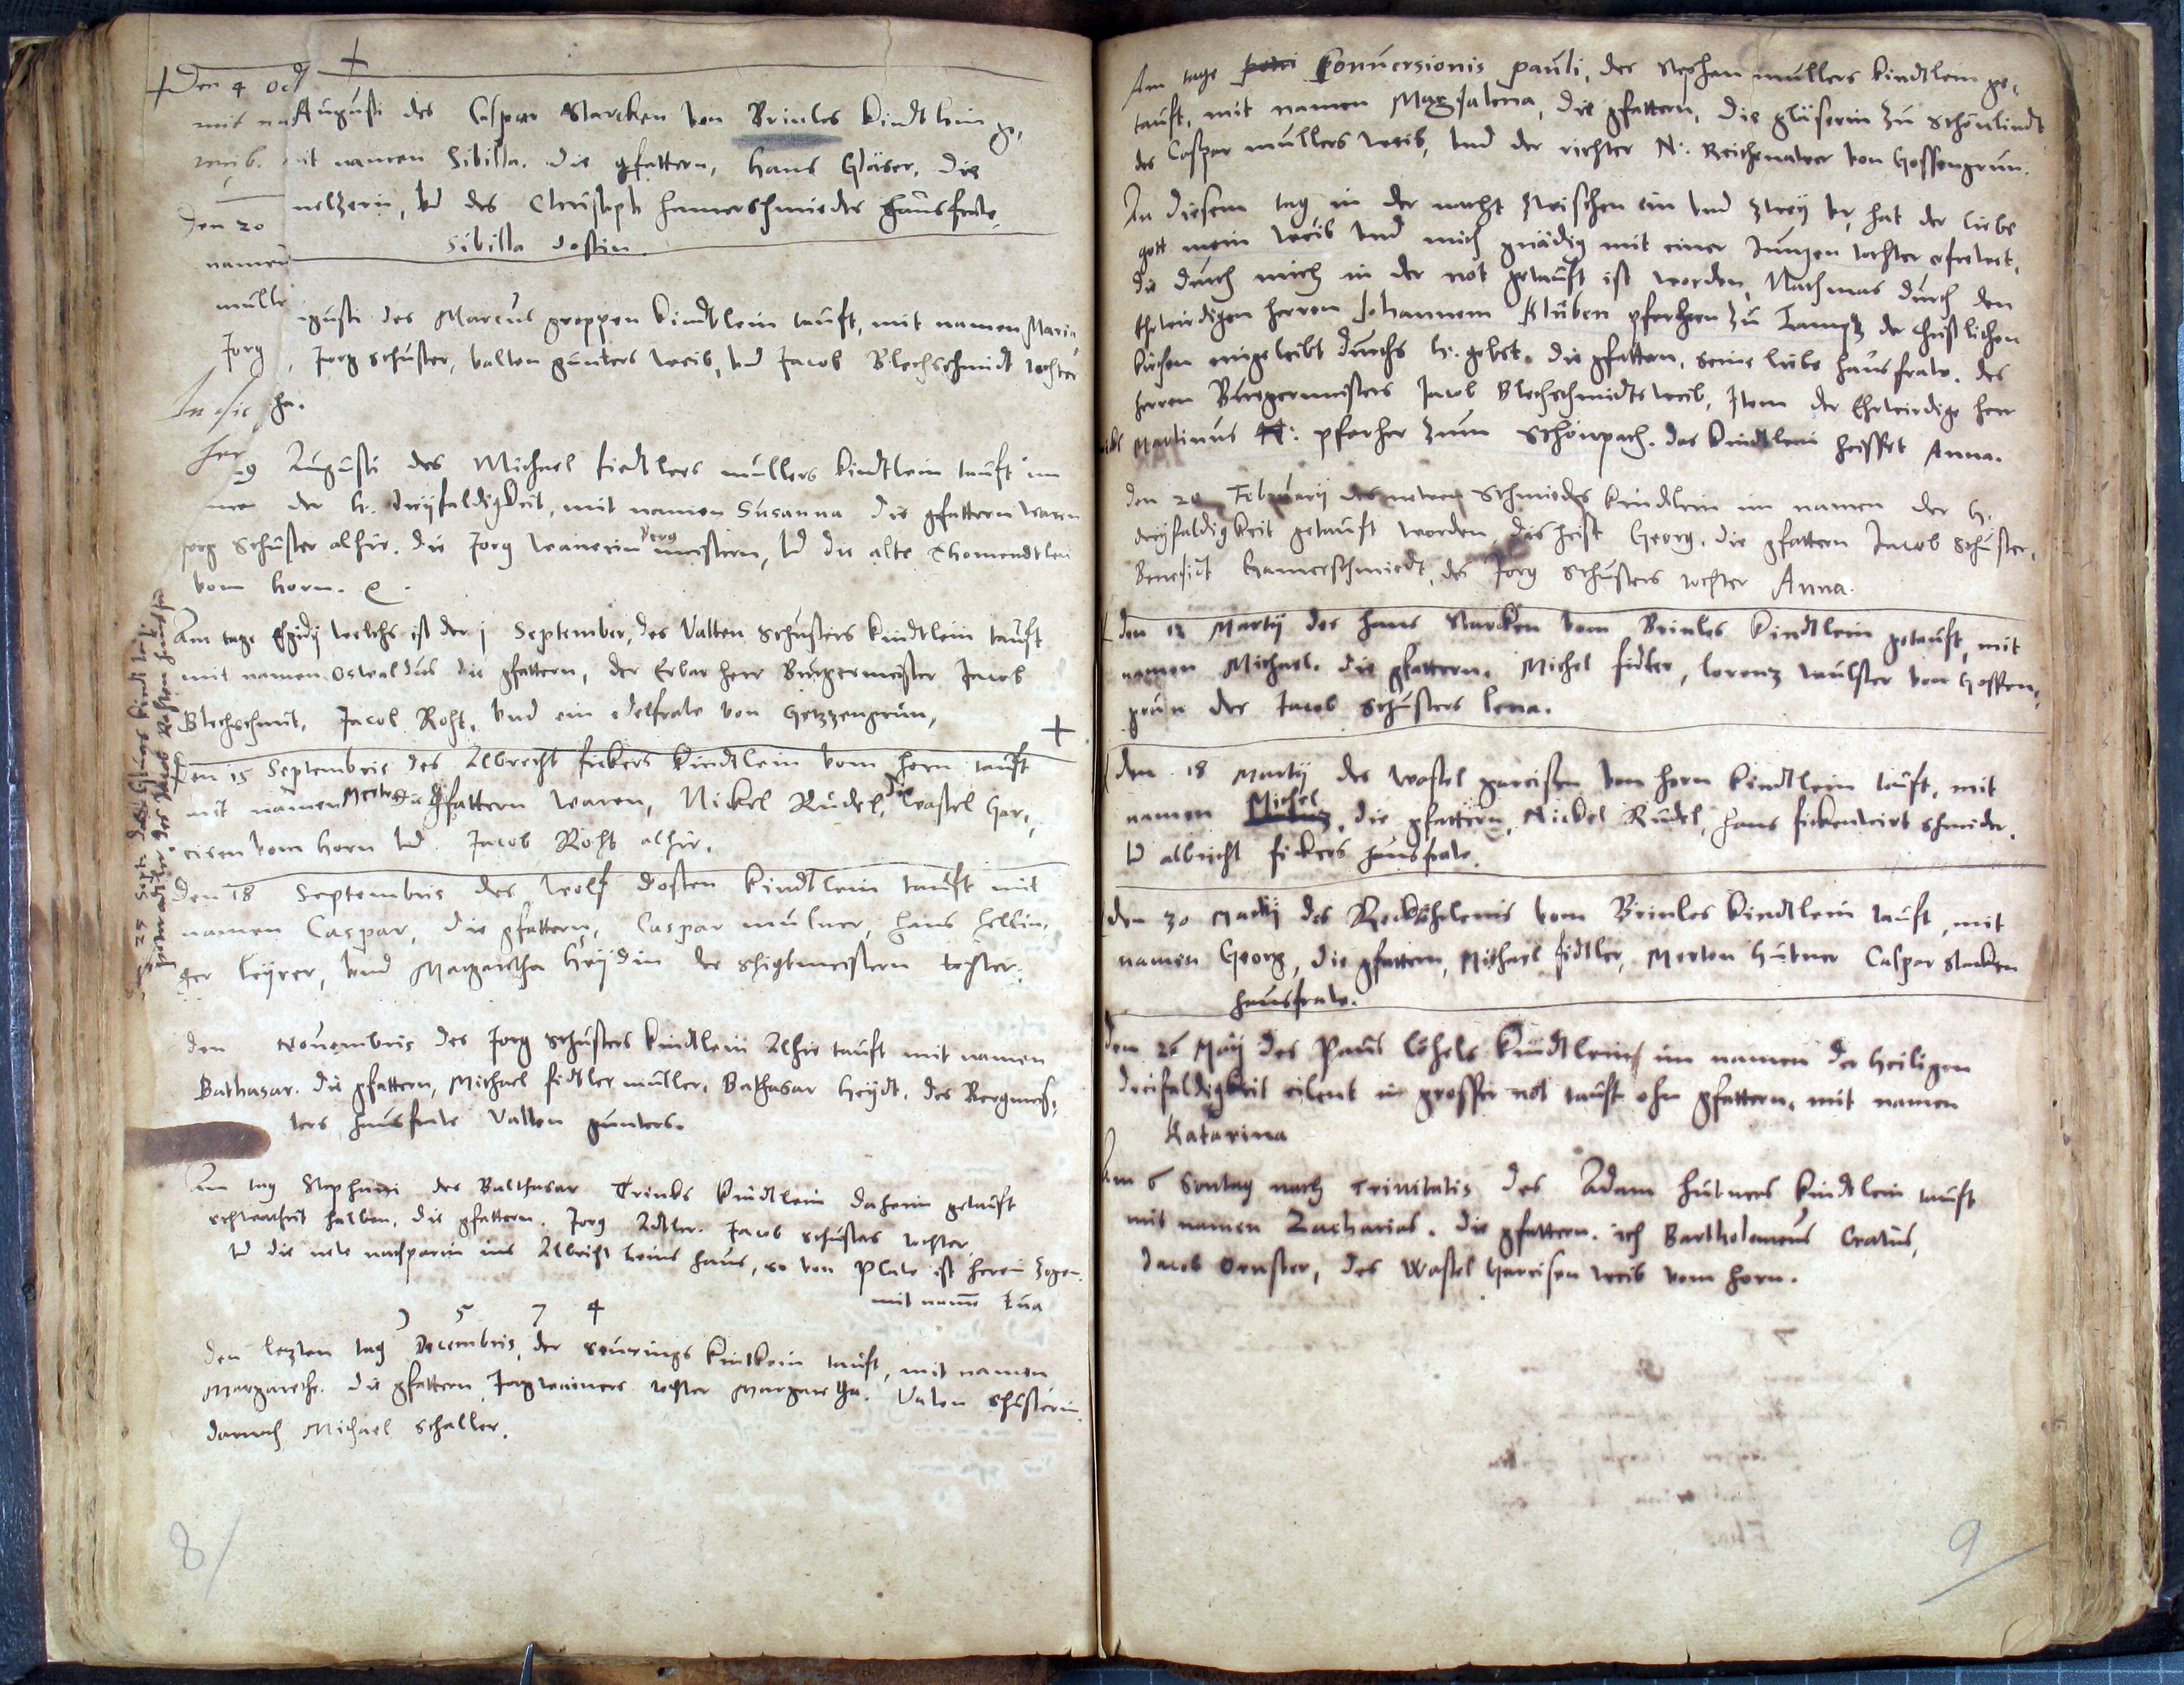 Den 4 Oct
mit na Augusti des Caspar Starcken von Brinles Kindtlein ge,
weib. it namen Sibilla. die gfattern, Hans Gläser, die
nelzerin, vnd des Christoph hamerschmiedes hausfraw,
den 20
Sibilla dostin.
namen
mulle
igusti des Marcus groppen Kindtlein tauft, mit namen Maria
Jorg , Jorg Schuster, valten gunters weib, vnd Jacob Blechschmidt tochter
In die ha.
her
29 Augusti des Michael fiedlers mullers kindtlein tauft im
men der H. dreyfaldigkeit, mit namen Susanna die gfattern waren
Jorg Schuster alhir. die Jorg wanerin Berg meistern, vnd die alte
vom horn.
Am tage Egidij welchs ist der j September, des Valten Schusters kindtlein tauft
mit namen Oswaldus die gfattern, der Erbar herr Burgermeister Jacob
Blechschmit, Jacob Roht, vnd ein edelfraw von Gezzengrun,
Den 15 Septembris des Albrecht fickers Kindtlein vom horn tauft
mit namen Merten die gfattern waren, Nickel Rudel, die wastel Gar,
eisen vom horn vnd Jacob Roht alhir.
Den 18 Septembris des Wolf dosten kindtlein tauft mit
namen Caspar, die gfattern, Caspar mulner, hans hellin,
ger leyrer, vnd Margaretha Heydin der schigtmeistern tochter.
den Nouembris des Jorg Schusters kindtlein Alhie tauft mit namen
Balthasar. die gfattern, Michael fidler muller, Balthasar Heydt, des Bergmeis,
ters hausfraw Valten gunters.
Am tag Stephani des Balthasar Trinks kindtlein daheim getauft
schwacheit halben, die gfattern. Jorg Adler. Jacob Schusters tochter
vnd die newe nachparin ins Albrecht heins haus, so von Plawe ist herein zogen.
mit name Eua
1 5 7 4
Den lezten tag Decembris, der kintlein tauft, mit namen
Margarethe. die gfattern Jorg wainers tochter Margaretha. Valten Schusterin.
darnach Michael Schaller.
8
Am tage Conuersionis Pauli, des Stephan mullers kindtlein ge,
tauft, mit namen Magdalena, die gfattern, die gläserin zu Schönlindt
des Caspar mullers weib, vnd der richter N: Reichenawer von Gossengrun.
An diesem tag in der nacht zwischen ein vnd zwey vr, hat der liebe
gott mein weib vnd mich gnädig mit einer Jungen tochter erfrewet,
die durch mich in der not getauft ist worden, Nachmas durch den
Ehrwirdigen herren Johannem Kluben pfarhern zu der christlichen
kirchen eingeleibt durchs h. gebet. die gfattern, seine liebe hausfraw. des
herren Burgermeisters Jacob Blechschmidts weib, Item der Ehrwirdige herr
Martinus N: pfarher zum Schönpach. das kindtlein heisset Anna.
Den 20 Februarij des newen Schmieds kindtlein im namen der H.
dreyfaldigkeit getauft worden, das heist Georg. die gfattern Jacob Schuster,
Benedict Hamerschmiedt, des Jorg Schusters tochter Anna.
den 13 Martij des Hans Starcken vom Brinles kindtlein getauft, mit
namen Michael. die gfattern. Michel fidler, lorenz von Gossen,
grun der Jacob Schusters lena.
Den 18 Martij des wastel gareisen von horn kindtlein tauft, mit
namen Michel, die gfattern, Nickel Rudel, Hans fickenwirt schneider,
vnd albrecht fickers hausfraw.
den 30 Martij des vom Brinles kindtlein tauft, mit
namen Georg, die gfattern, Michael fidler, Merten Hutner Caspar Starcken
hausfraw.
Den 26 Maij des Paul kindtlein im namen der heiligen
dreifaldigkeit eilent in grosser not tauft ohn gfattern, mit namen
Katarina
Am 6 Sontag nach Trinitatis des Adam hutners kindtlein tauft
mit namen Zacharias. die gfattern. ich Bartholomeus Cratus,
Jacob, des Wastel Gareisen weib vom horn.
9